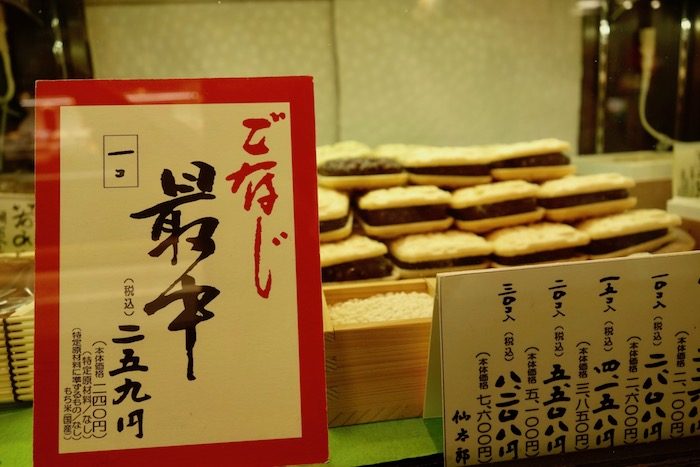 ご存じ
最中
一コ
(税込) 二五九円
(本体価格) 二四〇円
(特定原材料/なし)
(特定原材料に準ずるもの/なし)
もち米(国産)
一〇コ入 (税込) 二、八〇八円
(本体価格) 二、六〇〇円
一五コ入 (税込) 四、一五八円
(本体価格) 三、八五〇円
二〇コ入 (税込) 五、五〇八円
(本体価格) 五、一〇〇円
三〇コ入 (税込) 八、二〇八円
(本体価格) 七、六〇〇円
仙太郎